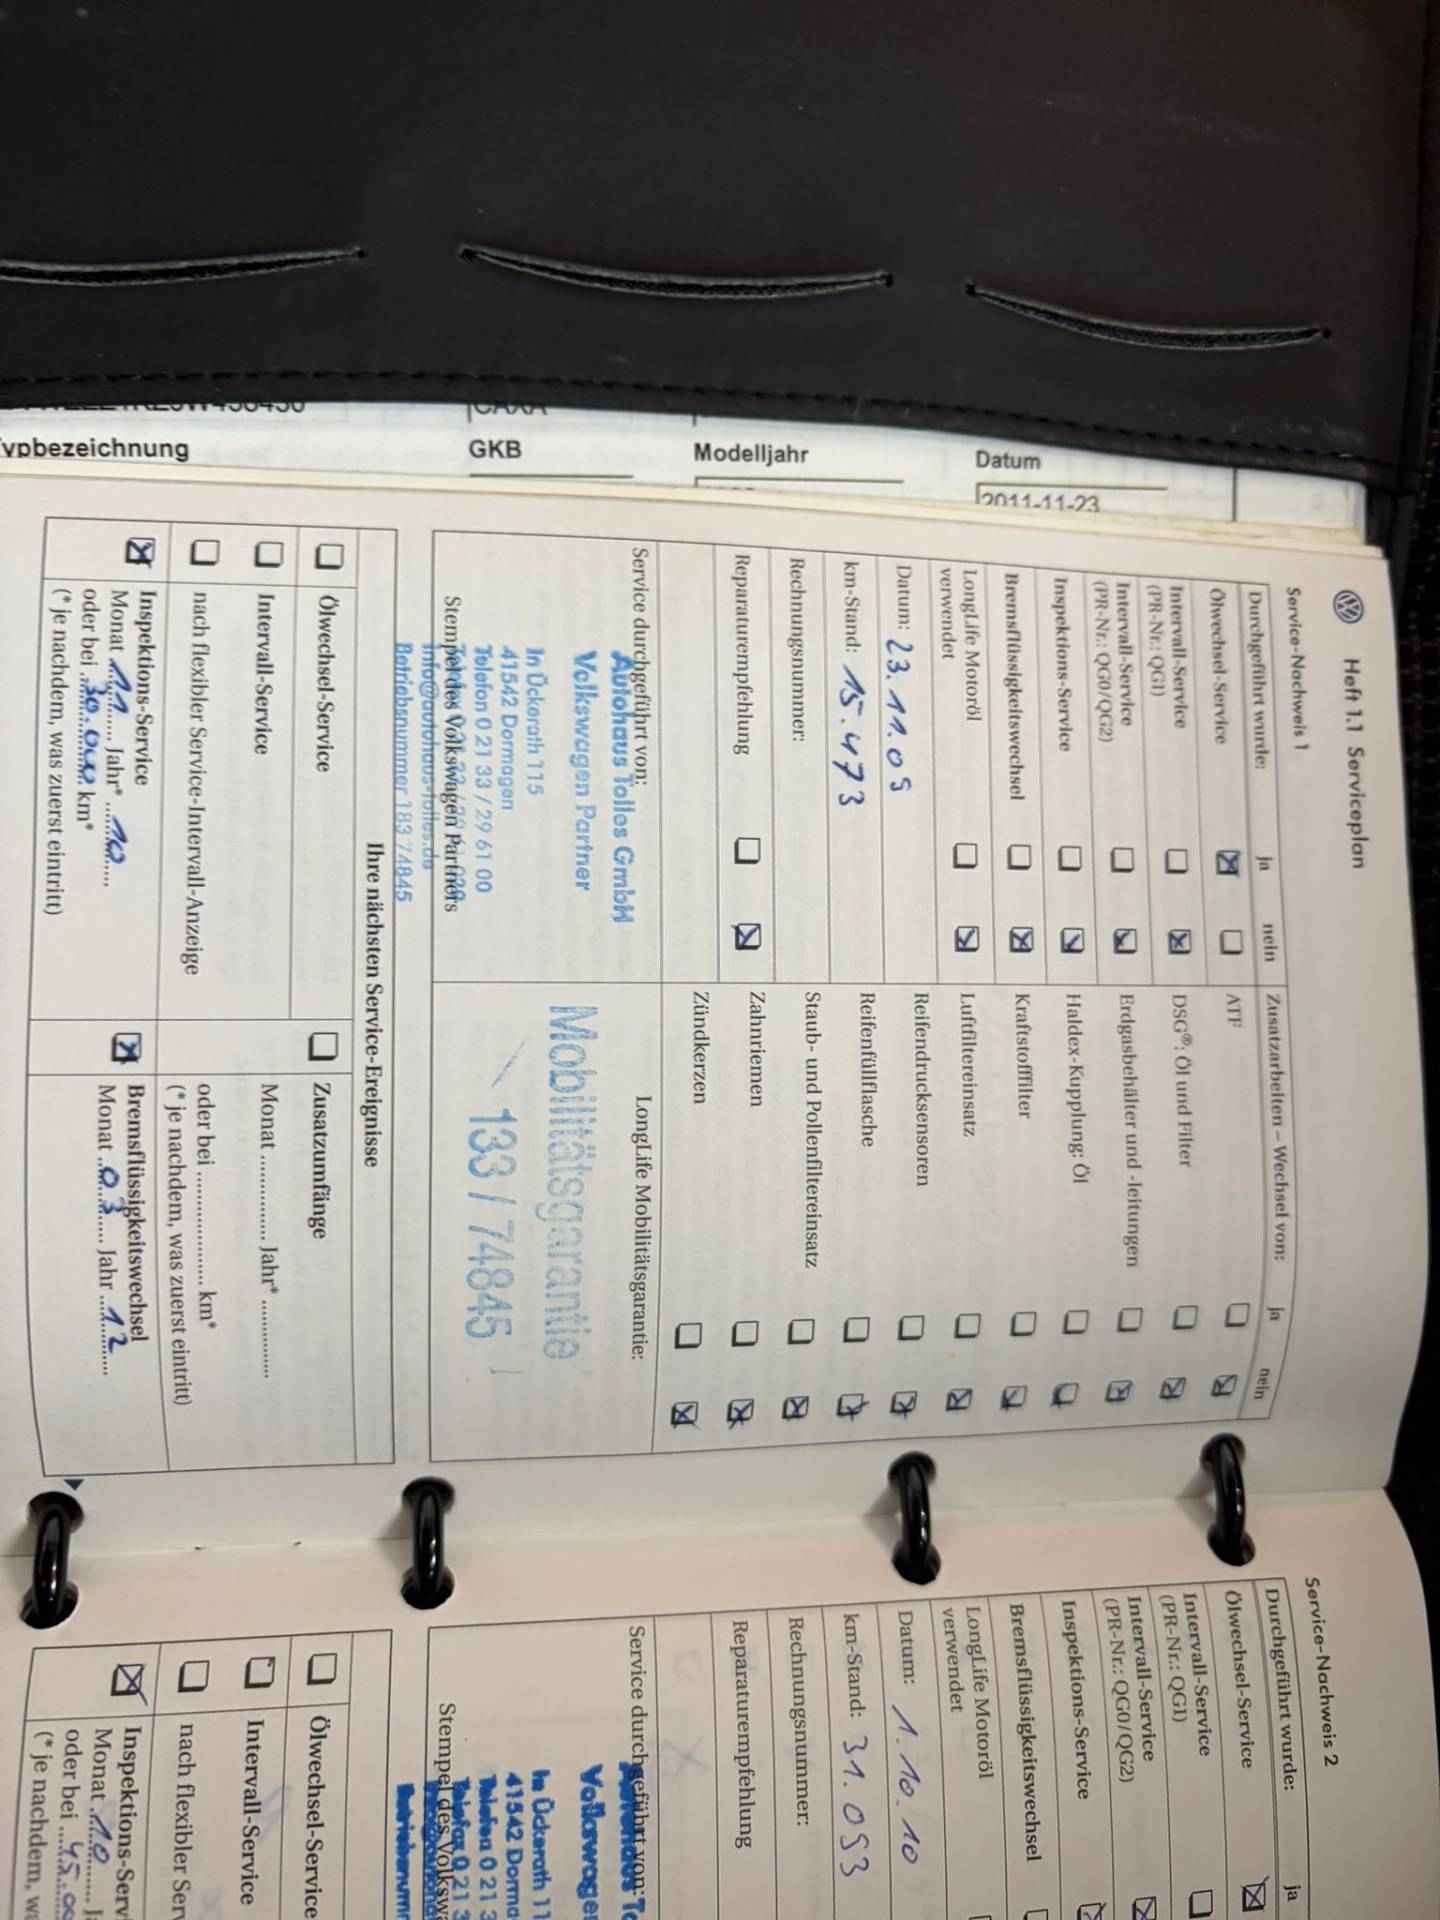 CAXA
Typbezeichnung
GKB
Modelljahr
Datum
2011-11-23
Heft 1.1 Serviceplan
Service-Nachweis 1
Durchgeführt wurde: ja nein
Ölwechsel-Service
Intervall-Service
(PR-Nr.: QG1)
Intervall-Service
(PR-Nr.: QG0/QG2)
Inspektions-Service
Bremsflüssigkeitswechsel
LongLife Motoröl
verwendet
Datum: 23.11.09
km-Stand: 15.473
Rechnungsnummer:
Reparaturempfehlung
Zusatzarbeiten – Wechsel von: ja nein
ATF
DSG®: Öl und Filter
Erdgasbehälter und -leitungen
Haldex-Kupplung: Öl
Kraftstofffilter
Luftfiltereinsatz
Reifendrucksensoren
Reifenfüllflasche
Staub- und Pollenfiltereinsatz
Zahnriemen
Zündkerzen
Service durchgeführt von:
Autohaus Tolles GmbH
Volkswagen Partner
In Ückerath 115
41542 Dormagen
Telefon 0 21 33 / 29 61 00
info@autohaus-tolles.de
Stempel des Volkswagen Partners
Betriebsnummer 183 74845
LongLife Mobilitätsgarantie:
Mobilitätsgarantie
133 / 74845
Ihre nächsten Service-Ereignisse
Ölwechsel-Service
Intervall-Service
nach flexibler Service-Intervall-Anzeige
Inspektions-Service
Monat 11 Jahr* 10
oder bei 30.000 km*
(* je nachdem, was zuerst eintritt)
Zusatzumfänge
Monat ............. Jahr* .............
oder bei .................... km*
(* je nachdem, was zuerst eintritt)
Bremsflüssigkeitswechsel
Monat 03 Jahr 12
Service-Nachweis 2
Durchgeführt wurde: ja
Ölwechsel-Service
Intervall-Service
(PR-Nr.: QG1)
Intervall-Service
(PR-Nr.: QG0/QG2)
Inspektions-Service
Bremsflüssigkeitswechsel
LongLife Motoröl
verwendet
Datum: 1.10.10
km-Stand: 31.093
Rechnungsnummer:
Reparaturempfehlung
Service durchgeführt von:
Volkswagen
In Ückerath 11
41542 Dorma
Telefon 0 21 3
Telefax 0 21 3
Stempel des Volkswa
Betriebsnumm
Ölwechsel-Service
Intervall-Service
nach flexibler Serv
Inspektions-Servi
Monat 10 J
oder bei 45.00
(* je nachdem, wa